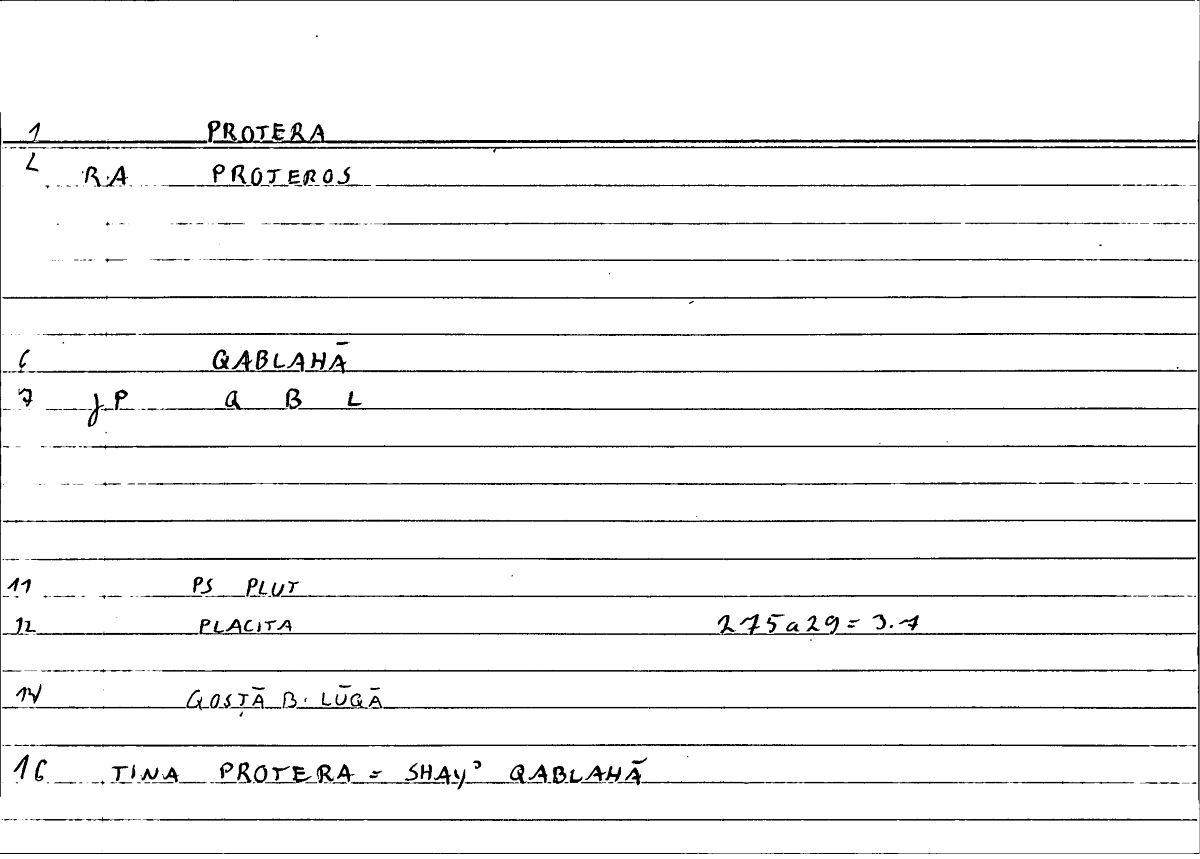 1 PROTERA
2 RA PROTEROS
6 QABLAHĀ
7 JP Q B L
11 PS PLUT
12 PLACITA 275a29 = 3.7
14 QOSṬĀ B. LŪQĀ
16 TINA PROTERA = SHAYʾ QABLAHĀ